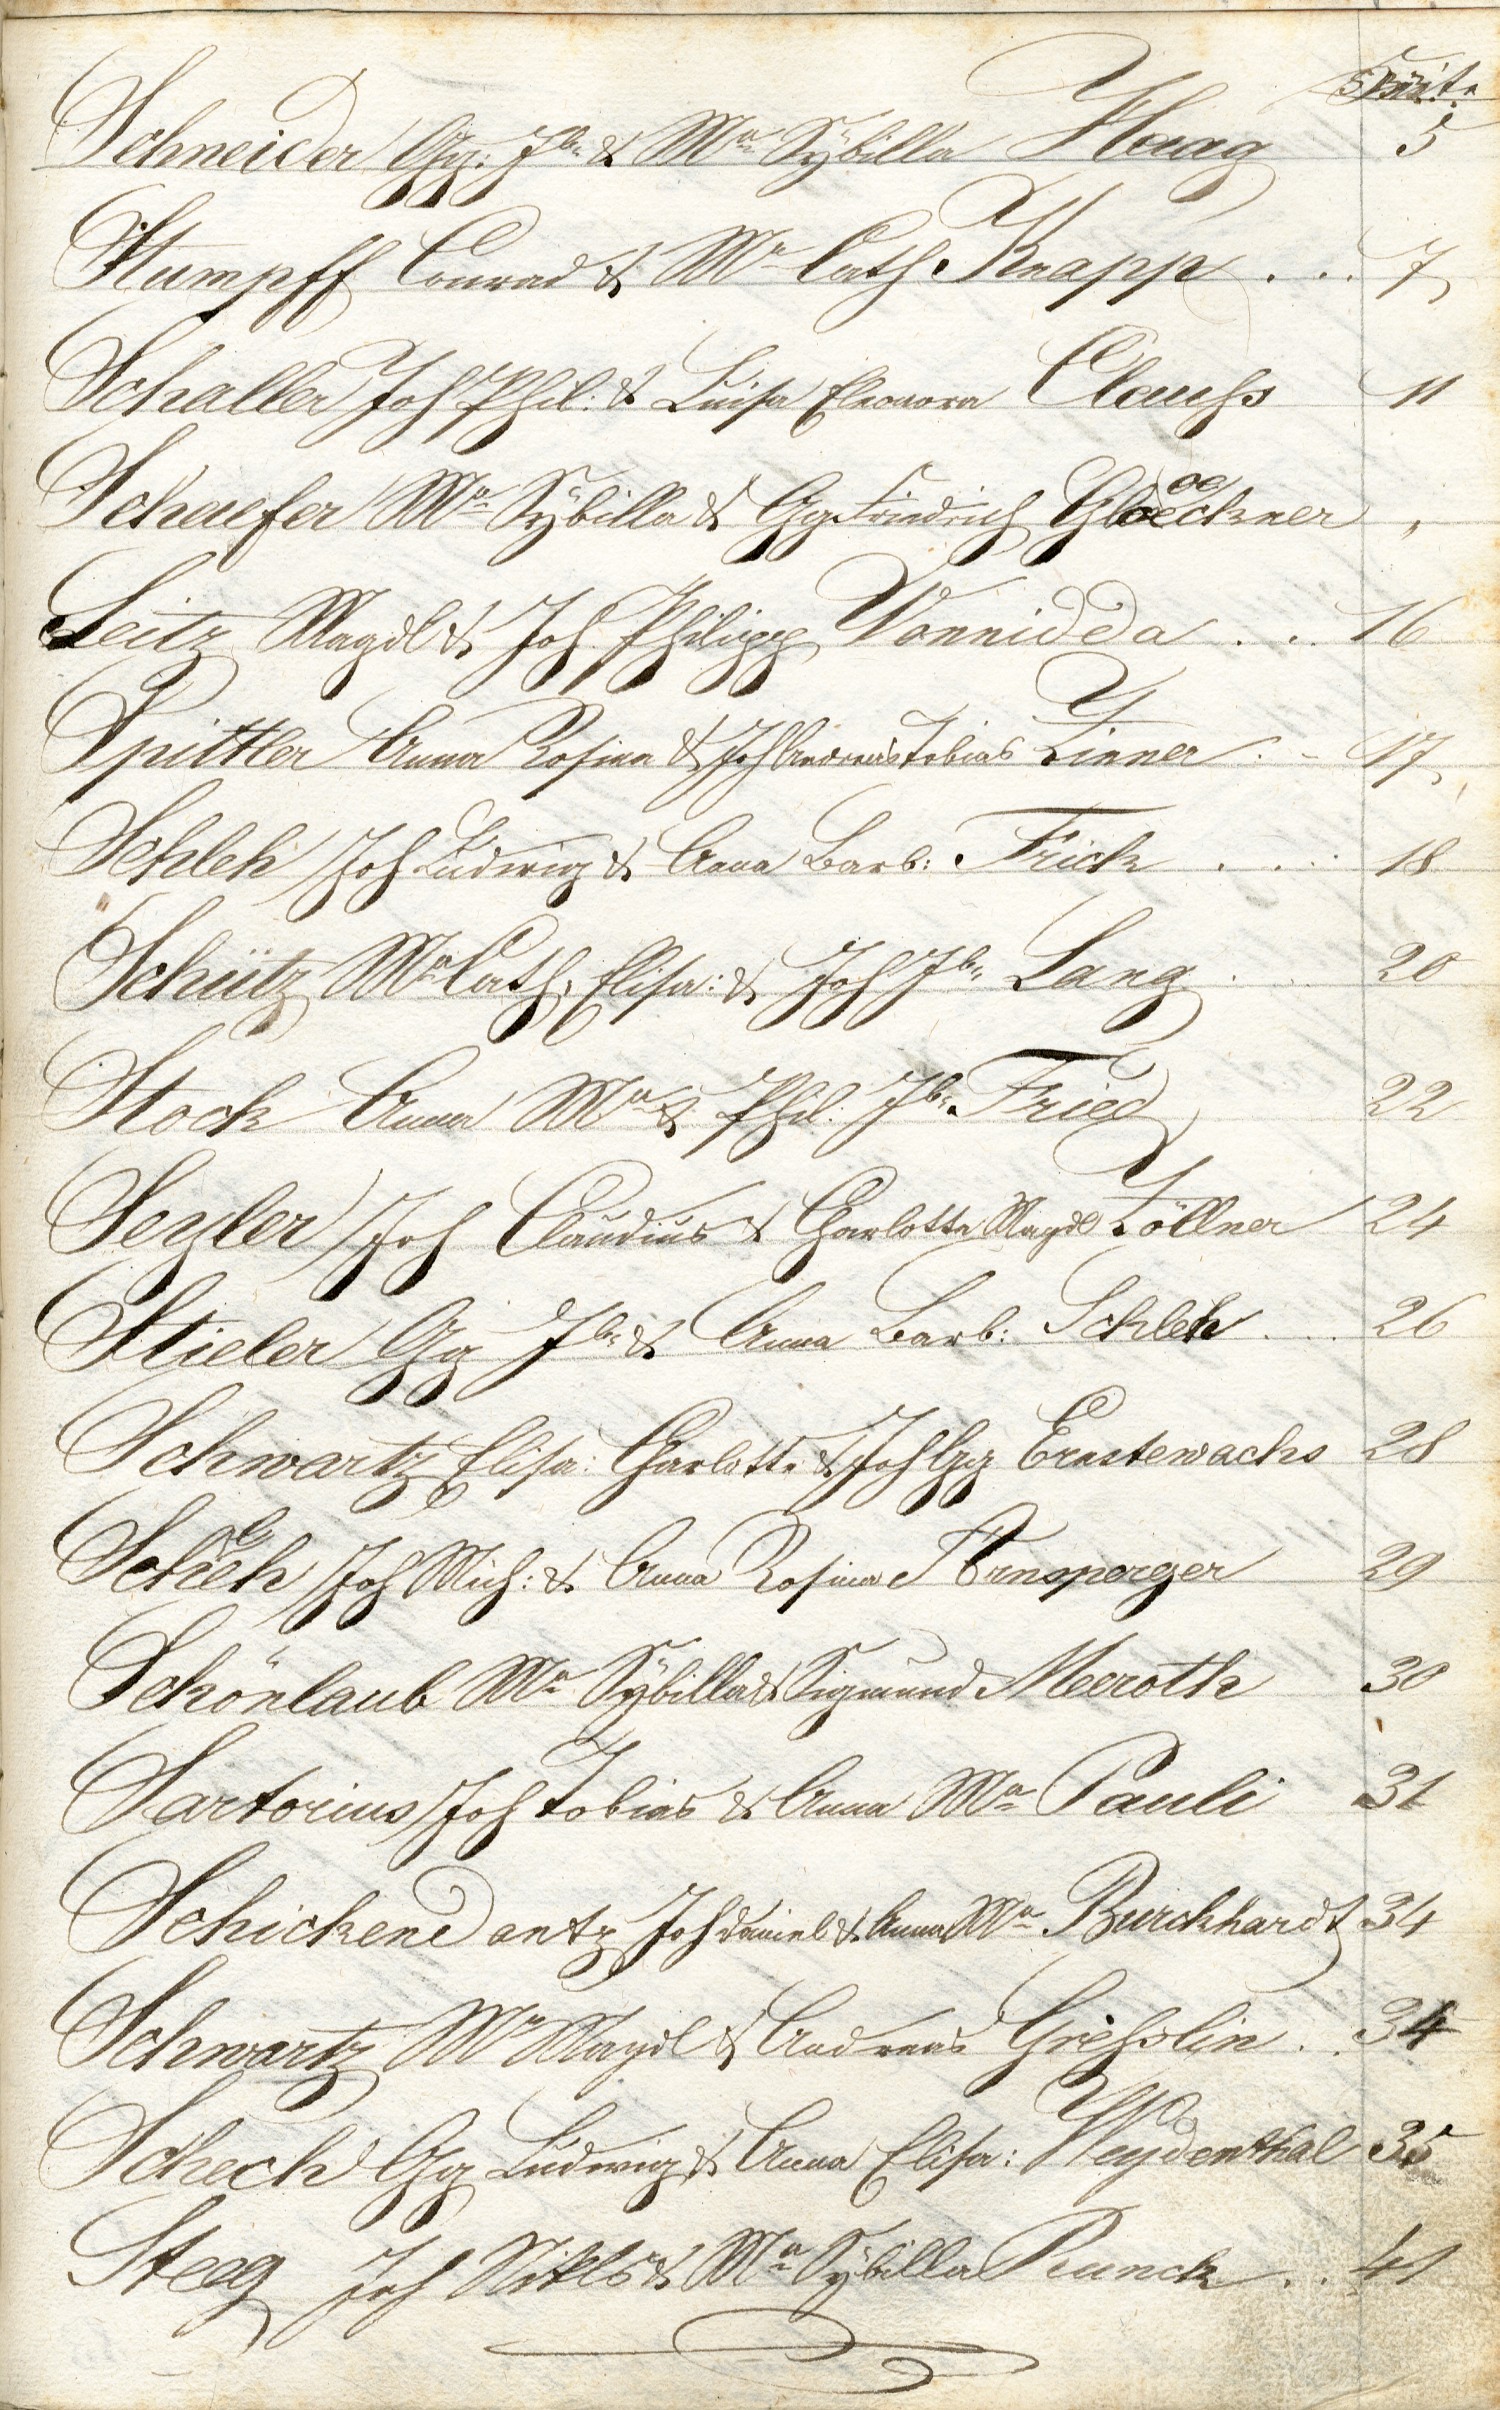 Seite
Schneider Gg: Jb: & Ma Sÿbilla Haag 5
Stumpff Conrad & Ma Cath Knapp . . . 7
Schaller Joh Phil: & Luisa Eleonora Clauss 11
Schaefer Ma Sÿbilla & Gg Friedrich Gloeckner "
Seitz Magdl & Joh. Philipp Vonnidda . . . 16
Spittler Anna Rosina & Joh Andreas Tobias Zinner . - 17
Schleh Joh Ludwig & Anna Barb: Frick . . . 18
Schütz Ma Cath. Elisa: & Joh Jb: Lang . . . 20
Stock Anna Ma & Phil: Jb: Fried 22
Seyler Joh Claudius & Charlotta Magdl Zöllner 24
Stieler Gg Jb: & Anna Barb: Schleh . . . 26
Schwartz Elisa: Charlotte & Joh Gg Erntewachs 28
Schleh Joh Mich: & Anna Rosina Ernsperger 29
Schönlaub Ma Sÿbilla & Sigmund Meeroth 30
Sartorius Joh Tobias & Anna Ma Pauli 31
Schickendantz Joh Daniel & Anna Ma Burckhardt 34
Schwartz Ma Magdl & Andreas Gresslin . . 34
Schech Gg Ludwig & Anna Elisa: Weydenthal 35
Steeg Joh Nikls & Ma Sÿbilla Runck . . 41